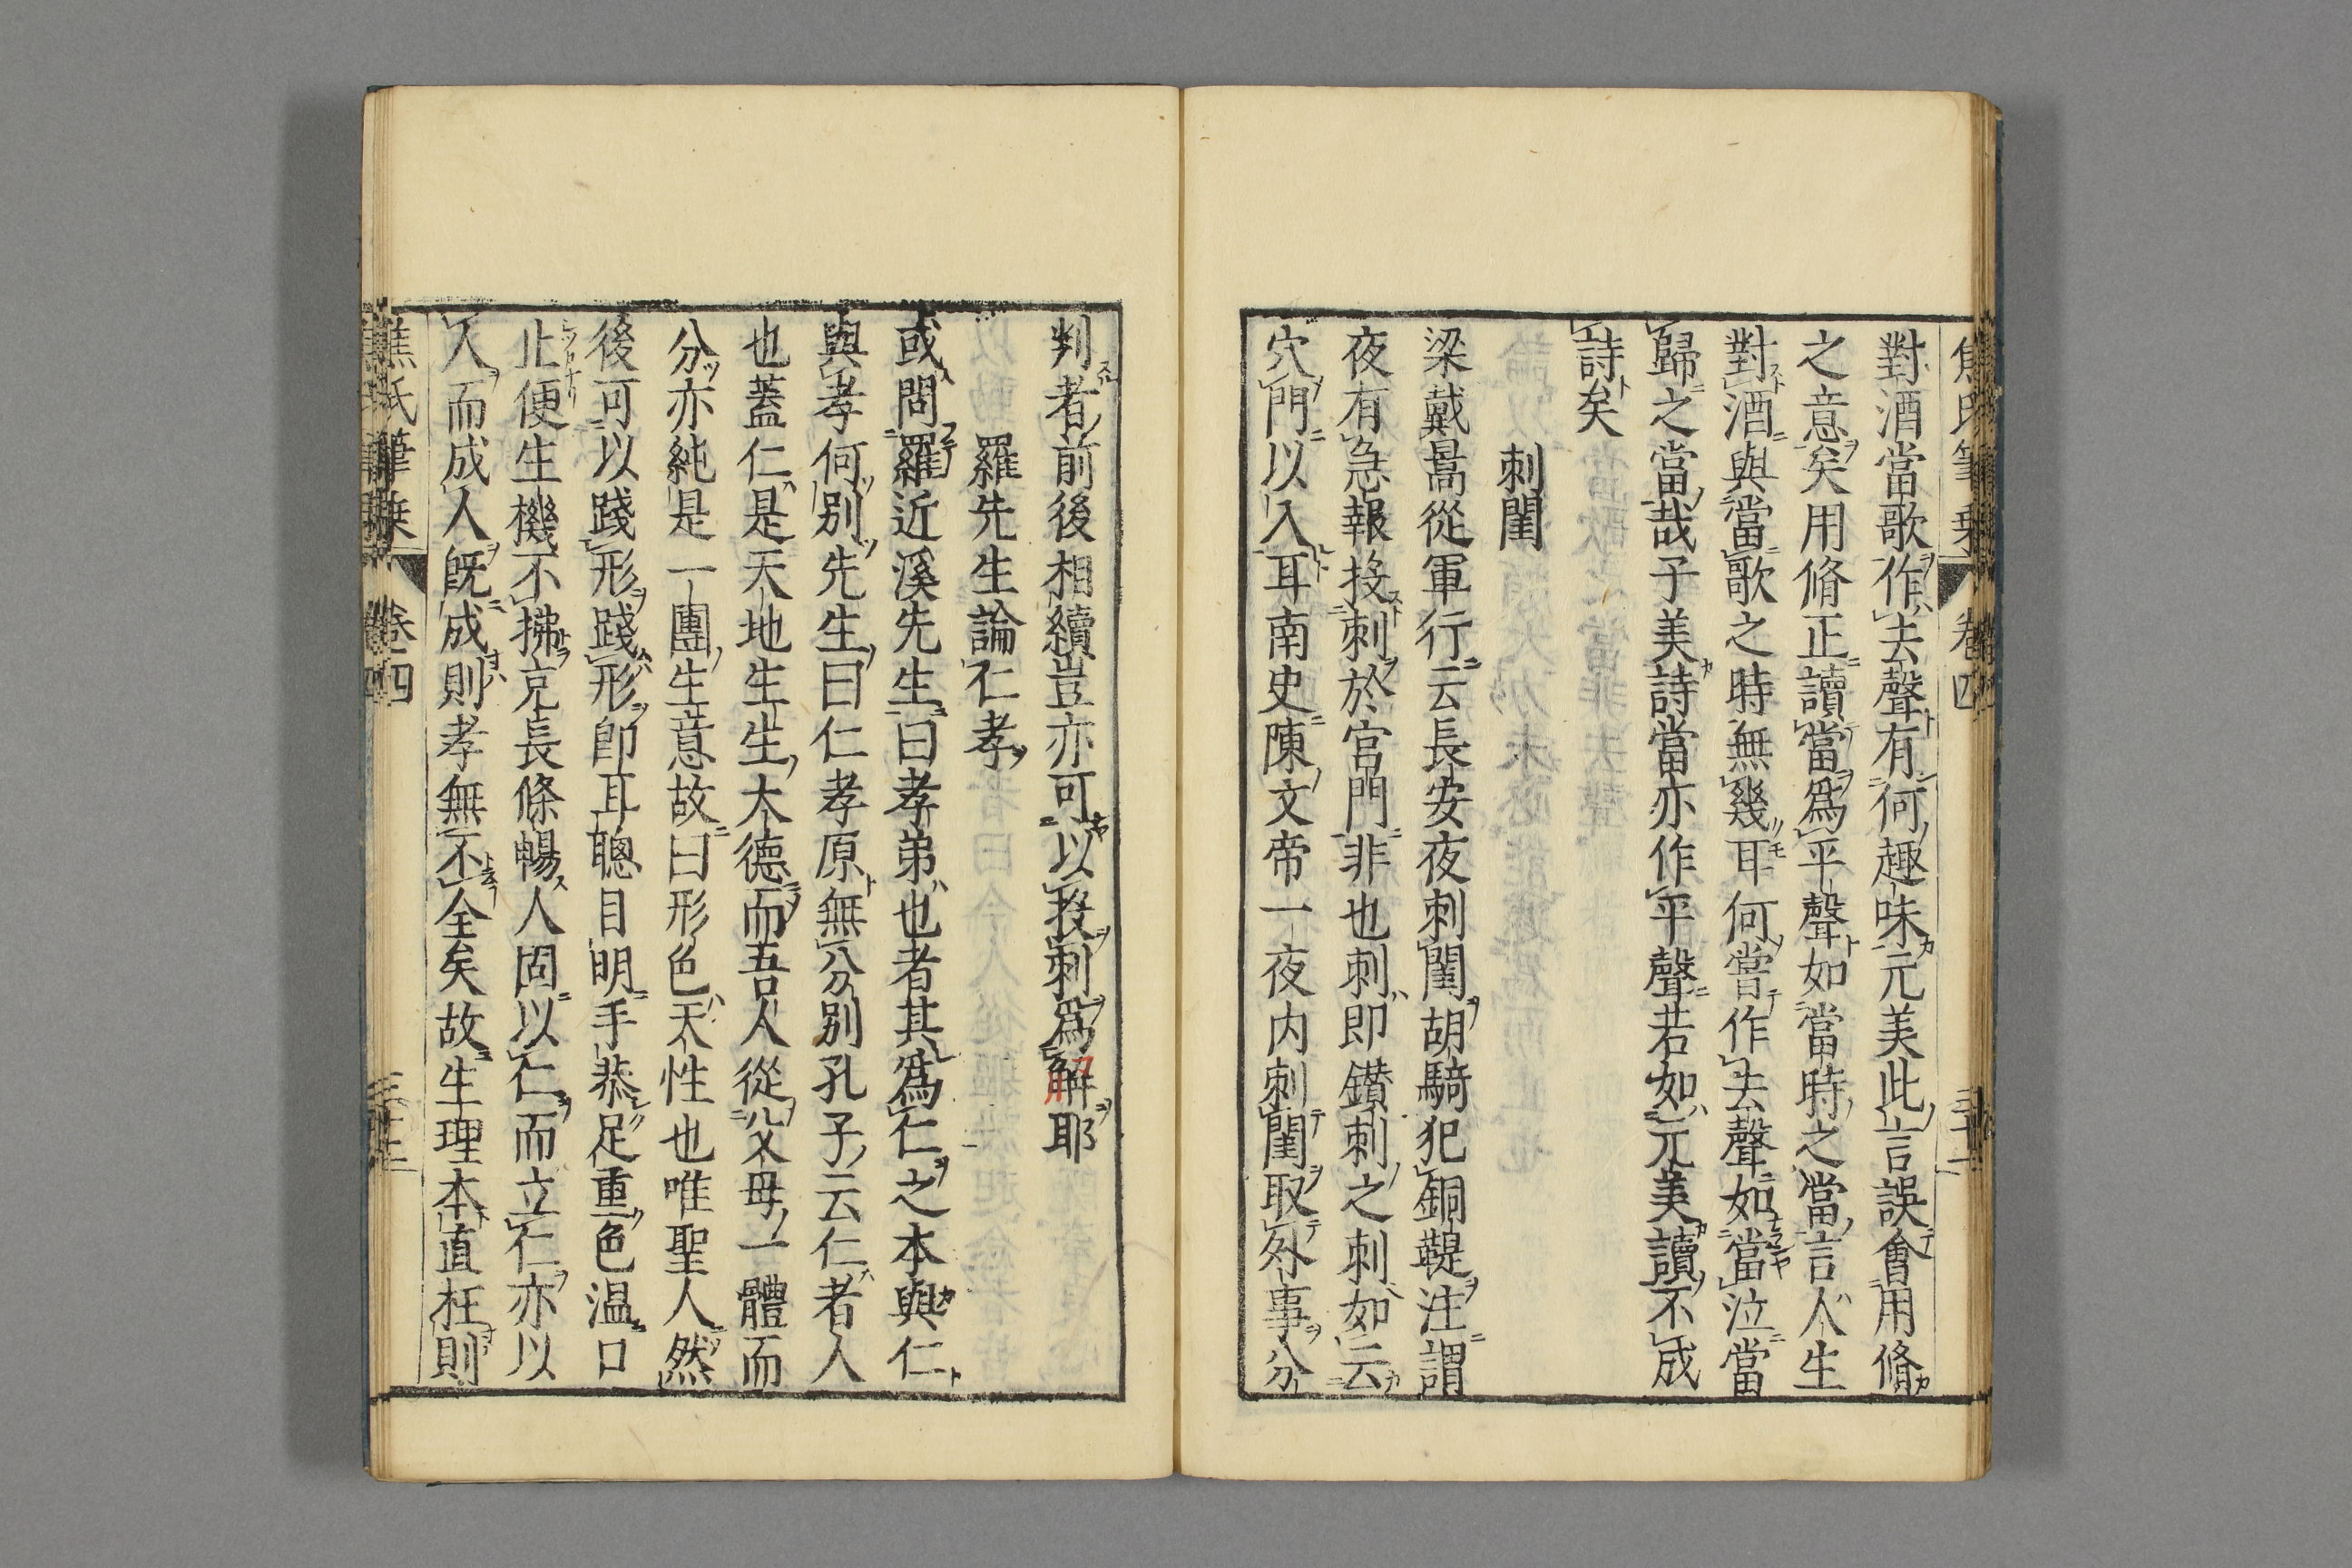 對酒當歌作去聲有何趣味元美此言誤會用脩
之意矣用脩正讀當爲平聲如當時之當言人生
對酒與當歌之時無幾耳何嘗作去聲如當泣當
歸之當哉子美詩當亦作平聲若如元美讀不成
詩矣
刺閨
梁戴暠從軍行云長安夜刺閨胡騎犯銅鞮注謂
夜有急報投刺於宮門非也刺即鑽刺之刺如云
穴門以入耳南史陳文帝一夜内刺閨取外事分
判者前後相續豈亦可以投刺爲解耶
羅先生論仁孝
或問羅近溪先生曰孝弟也者其爲仁之本與仁
與孝何別先生曰仁孝原無分別孔子云仁者人
也蓋仁是天地生生大德而吾人從父母一體而
分亦純是一團生意故曰形色天性也唯聖人然
後可以踐形踐形卽耳聰目明手恭足重色温口
止便生機不拂充長條暢人固以仁而立仁亦以
人而成人旣成則孝無不全矣故生理本直枉則
焦氏筆乗
卷四